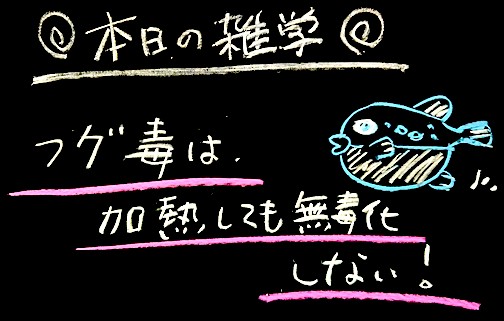 本日の雑学
フグ毒は、
加熱しても無毒化
しない!